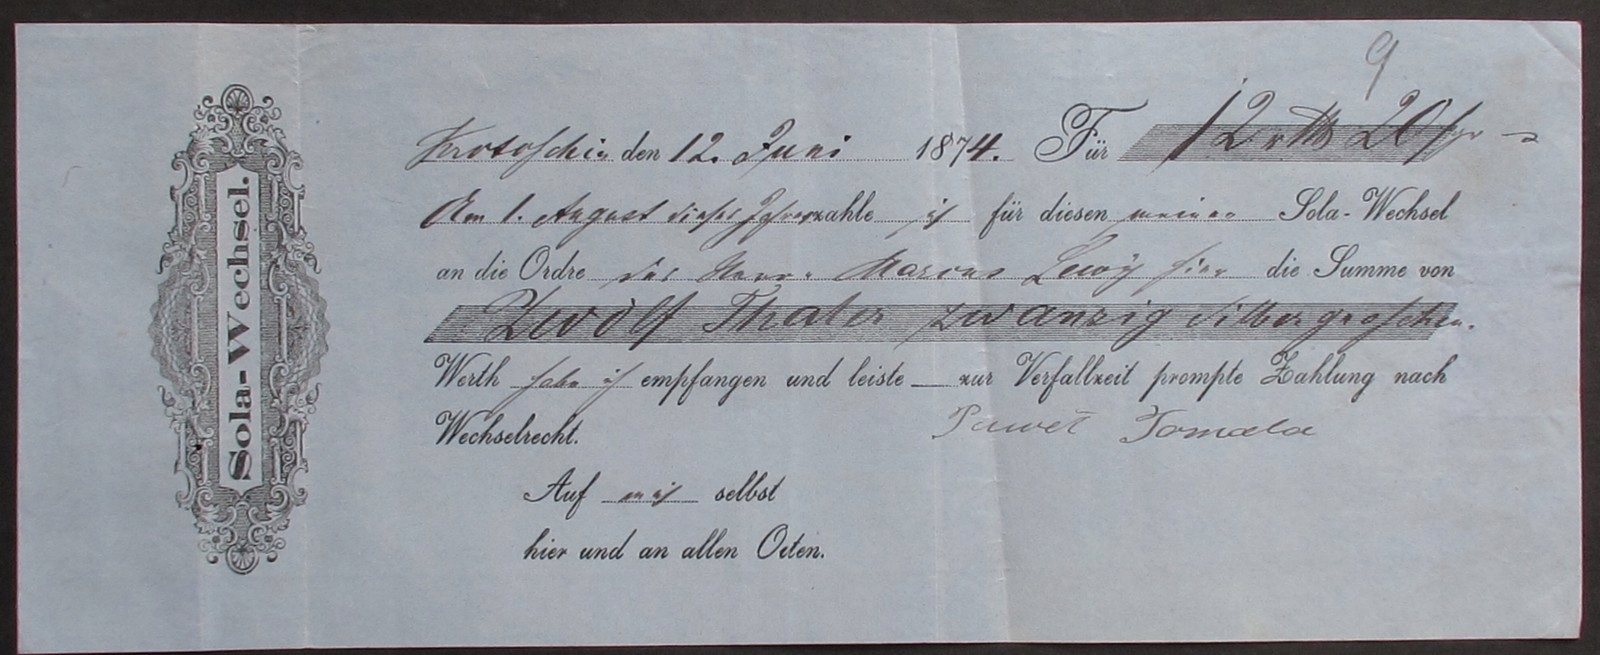 Sola-Wechsel.
9
Krotoschin den 12. Juni 1874. Für 12 rth 20 sgr
Am 1. August dieses Jahres zahle ich für diesen meinen Sola-Wechsel
an die Ordre des Herrn Marcus Lewy hier die Summe von
Zwölf Thaler zwanzig Silbergroschen.
Werth habe ich empfangen und leiste zur Verfallzeit prompte Zahlung nach
Wechselrecht.
Paweł Tomala
Auf mich selbst
hier und an allen Orten.